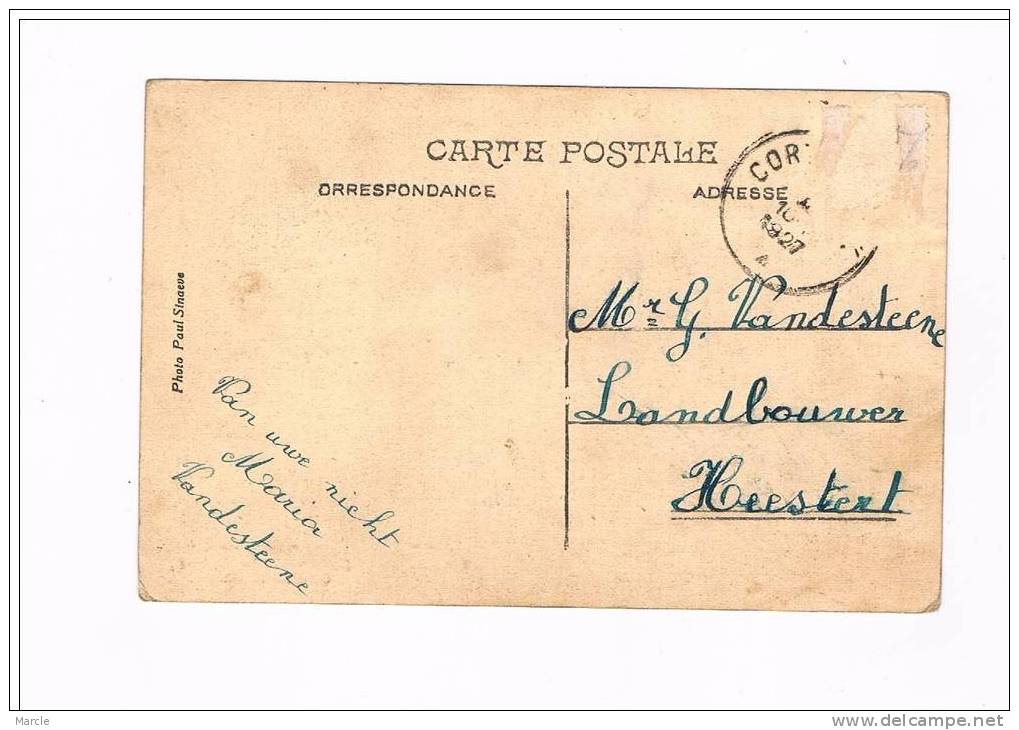 CARTE POSTALE
ORRESPONDANCE
ADRESSE
COR
1927
Mr G. Vandesteene
Landbouwer
Heestert
Photo Paul Sinaeve
Van uwe nicht
Maria
Vandesteene
Marcle
www.delcampe.net